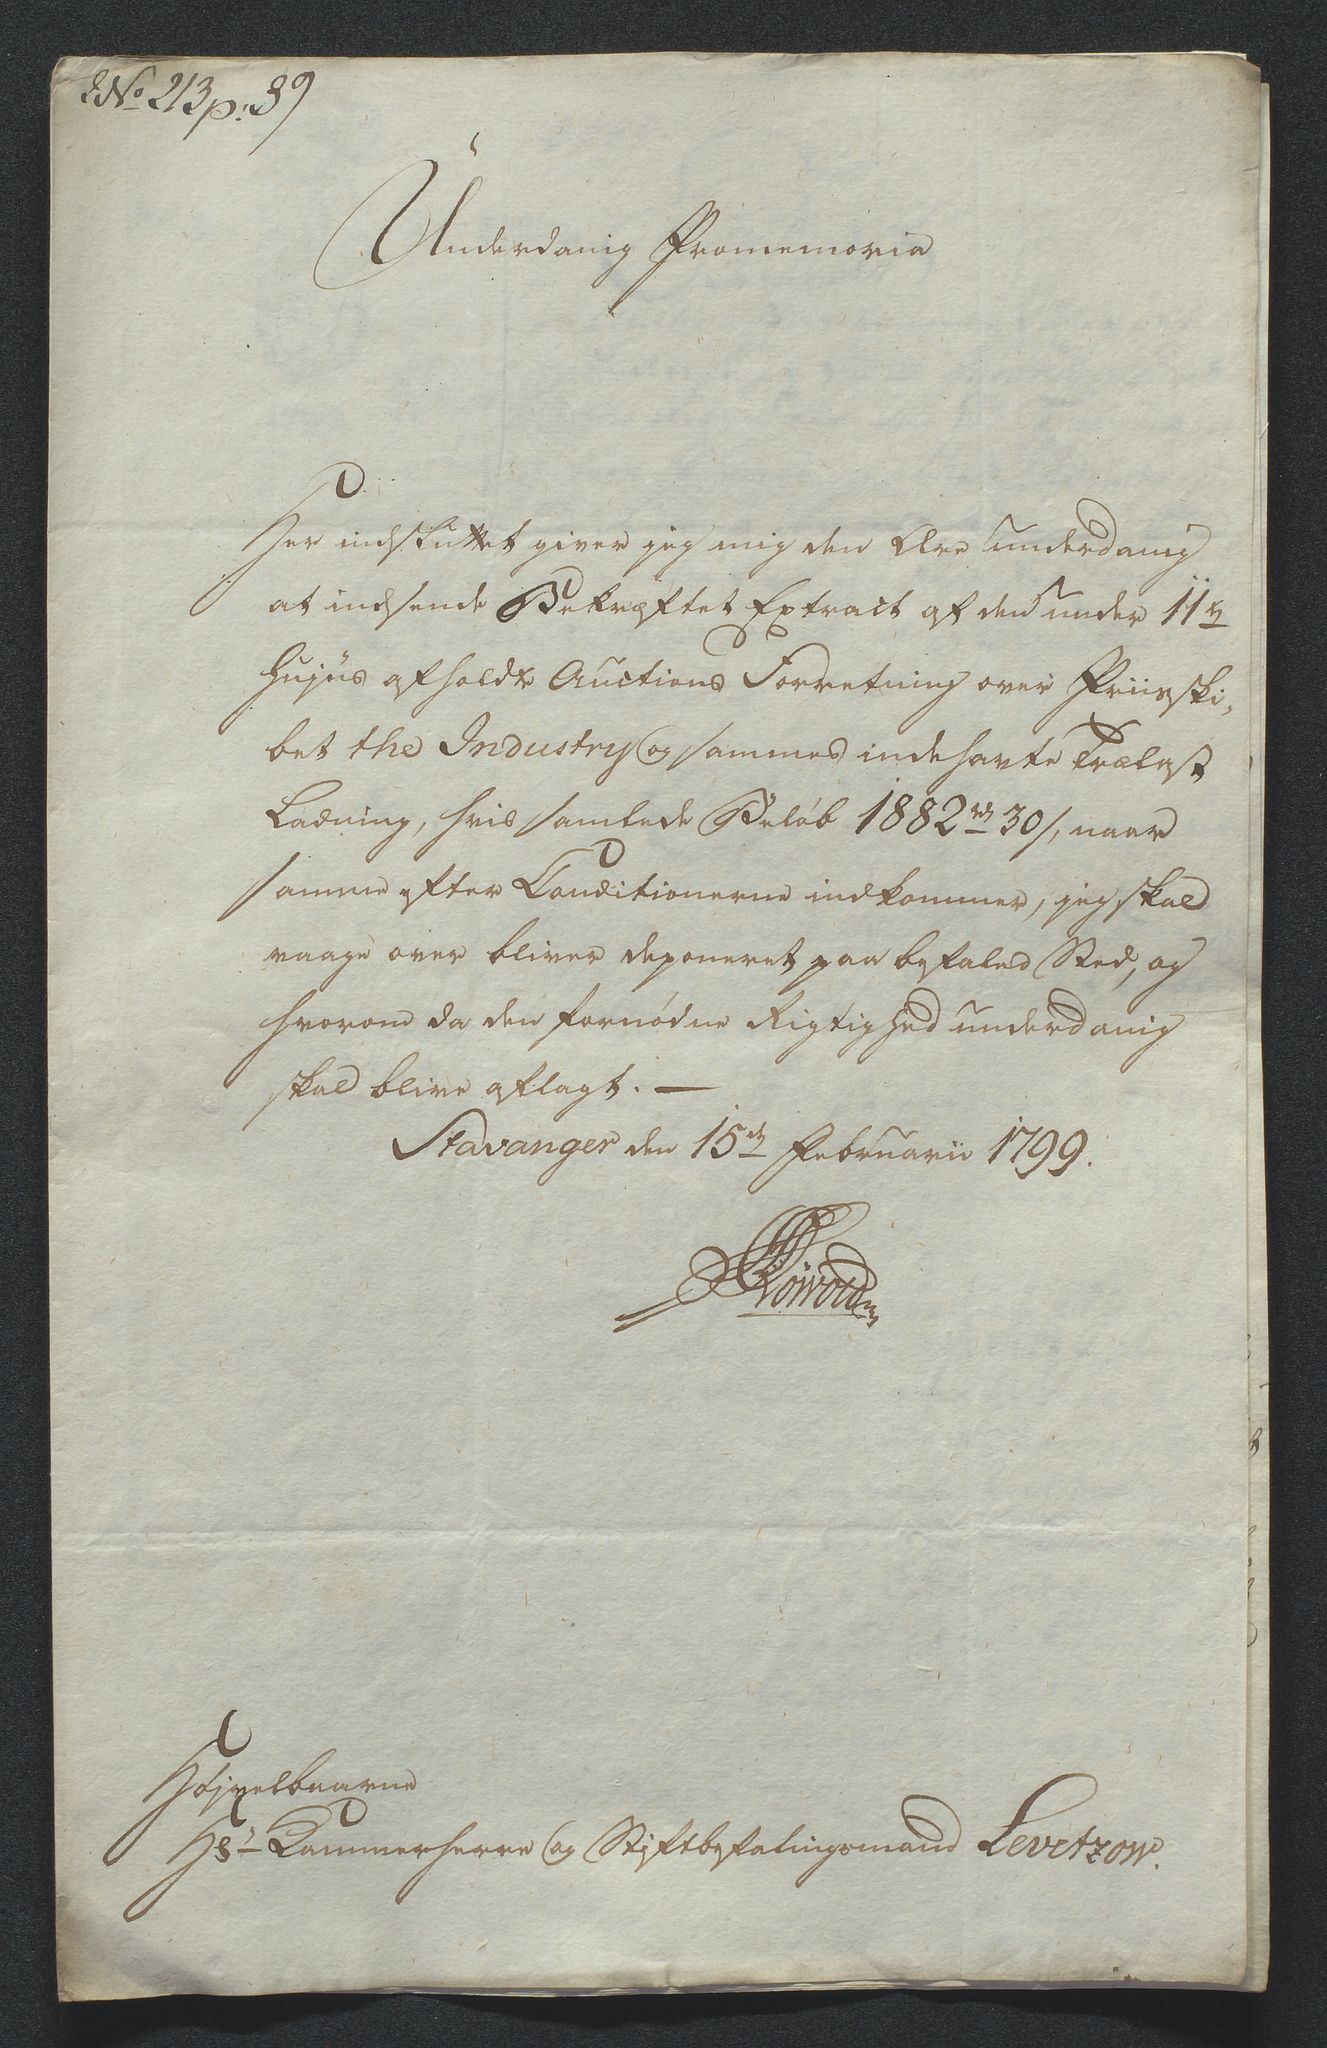 No 213 p: 89
Underdanig Promemoria
Her indsluttet giver jeg mig den Ære underdanig
at indsende Bekræftet Extract af den under 11te
hujus afholdte Auctions Forretning over Priisski-
bet the Industry og sammes indehavte Trælast
Ladning, hvis samlede Beløb 1882 rd 30 s, naar
samme efter Conditionerne indkommer, jeg skal
vaage over bliver deponeret paa befaled Sted, og
hvorom da den fornødne Rigtighed underdanig
skal blive aflagt. —
Stavanger den 15de Februarii 1799.
Højvelbaarne
Hr Kammerherre og Stiftbefalingsmand Levetzow.